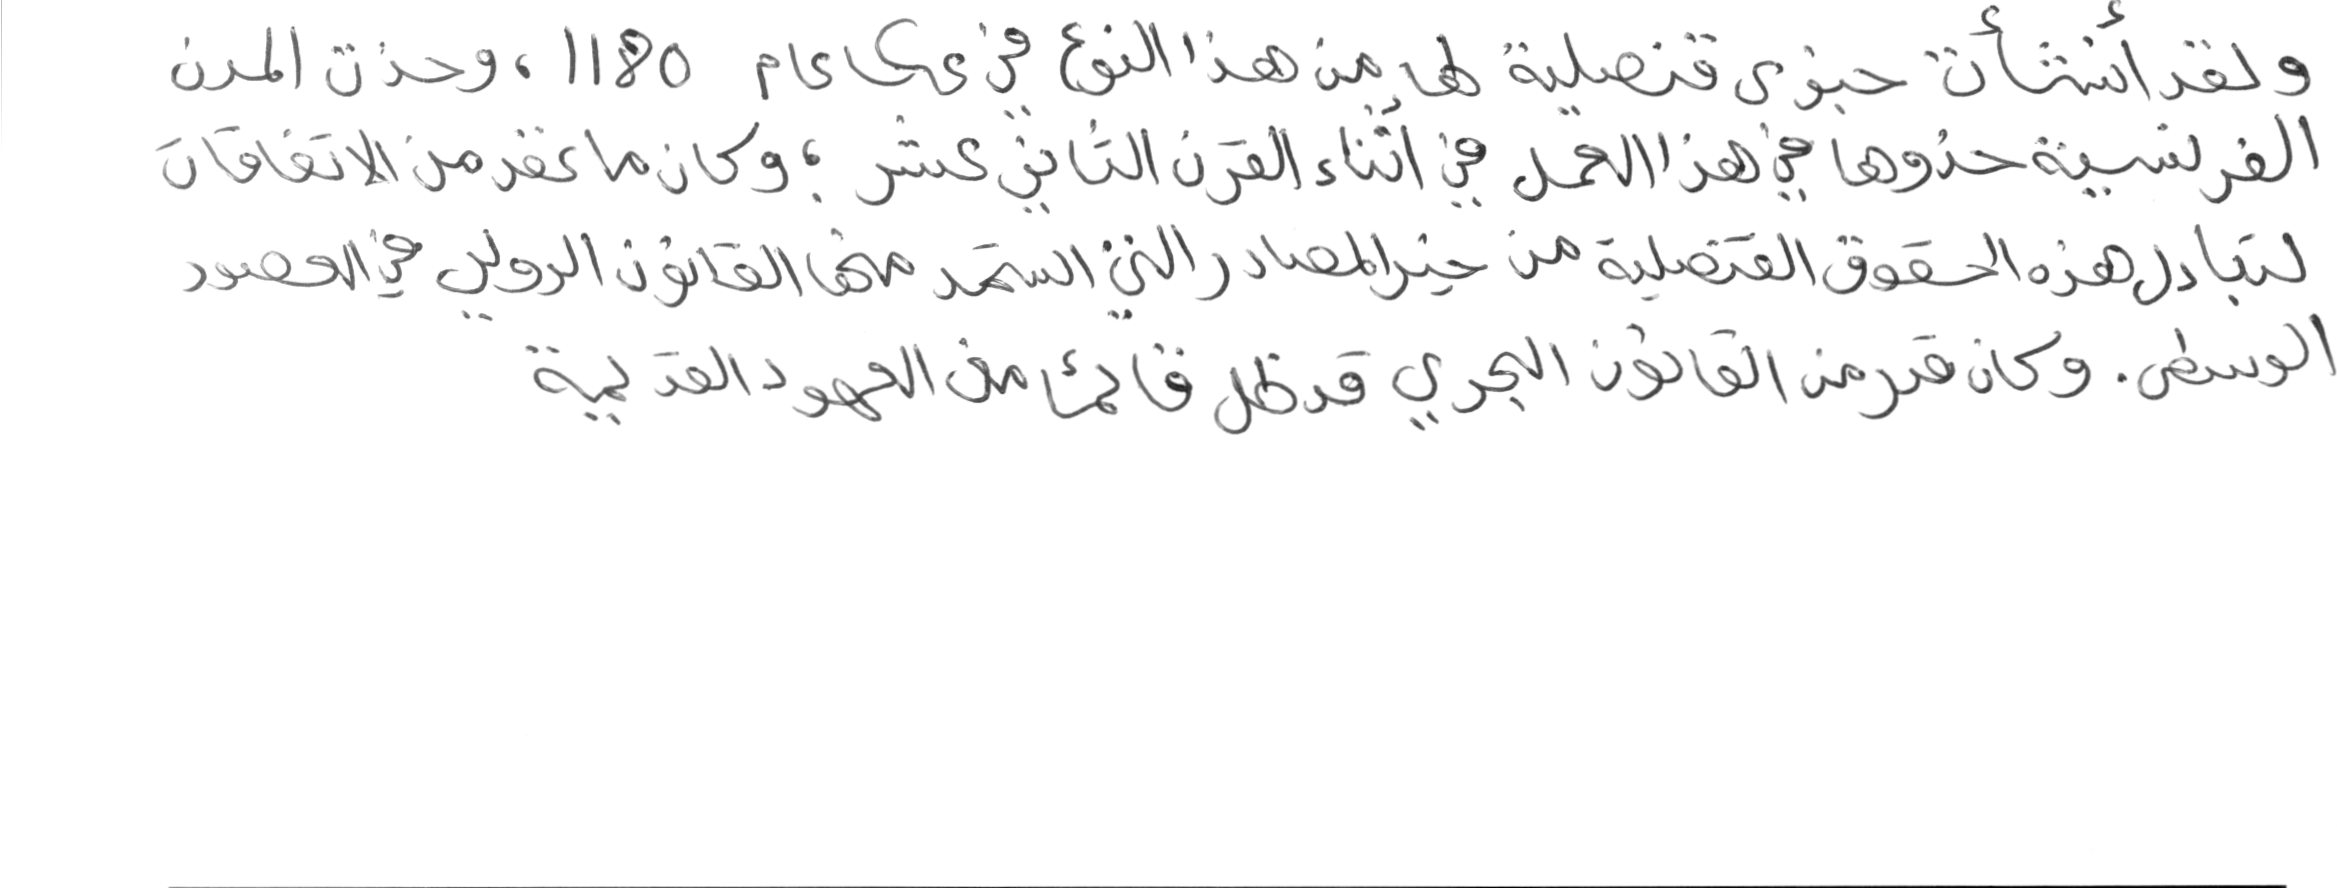 ولقد أنشأت جنوى قنصلية لها من هذا النوع في عكا عام 1180، وحذت المدن
الفرنسية حذوها في هذا العمل في أثناء القرن الثاني عشر؛ وكان ما عقد من الاتفاقات
لتبادل هذه الحقوق القنصلية من خير المصادر التي استمد منها القانون الدولي في العصور
الوسطى. وكان قدر من القانون البحري قد ظل قائما من العهود القديمة